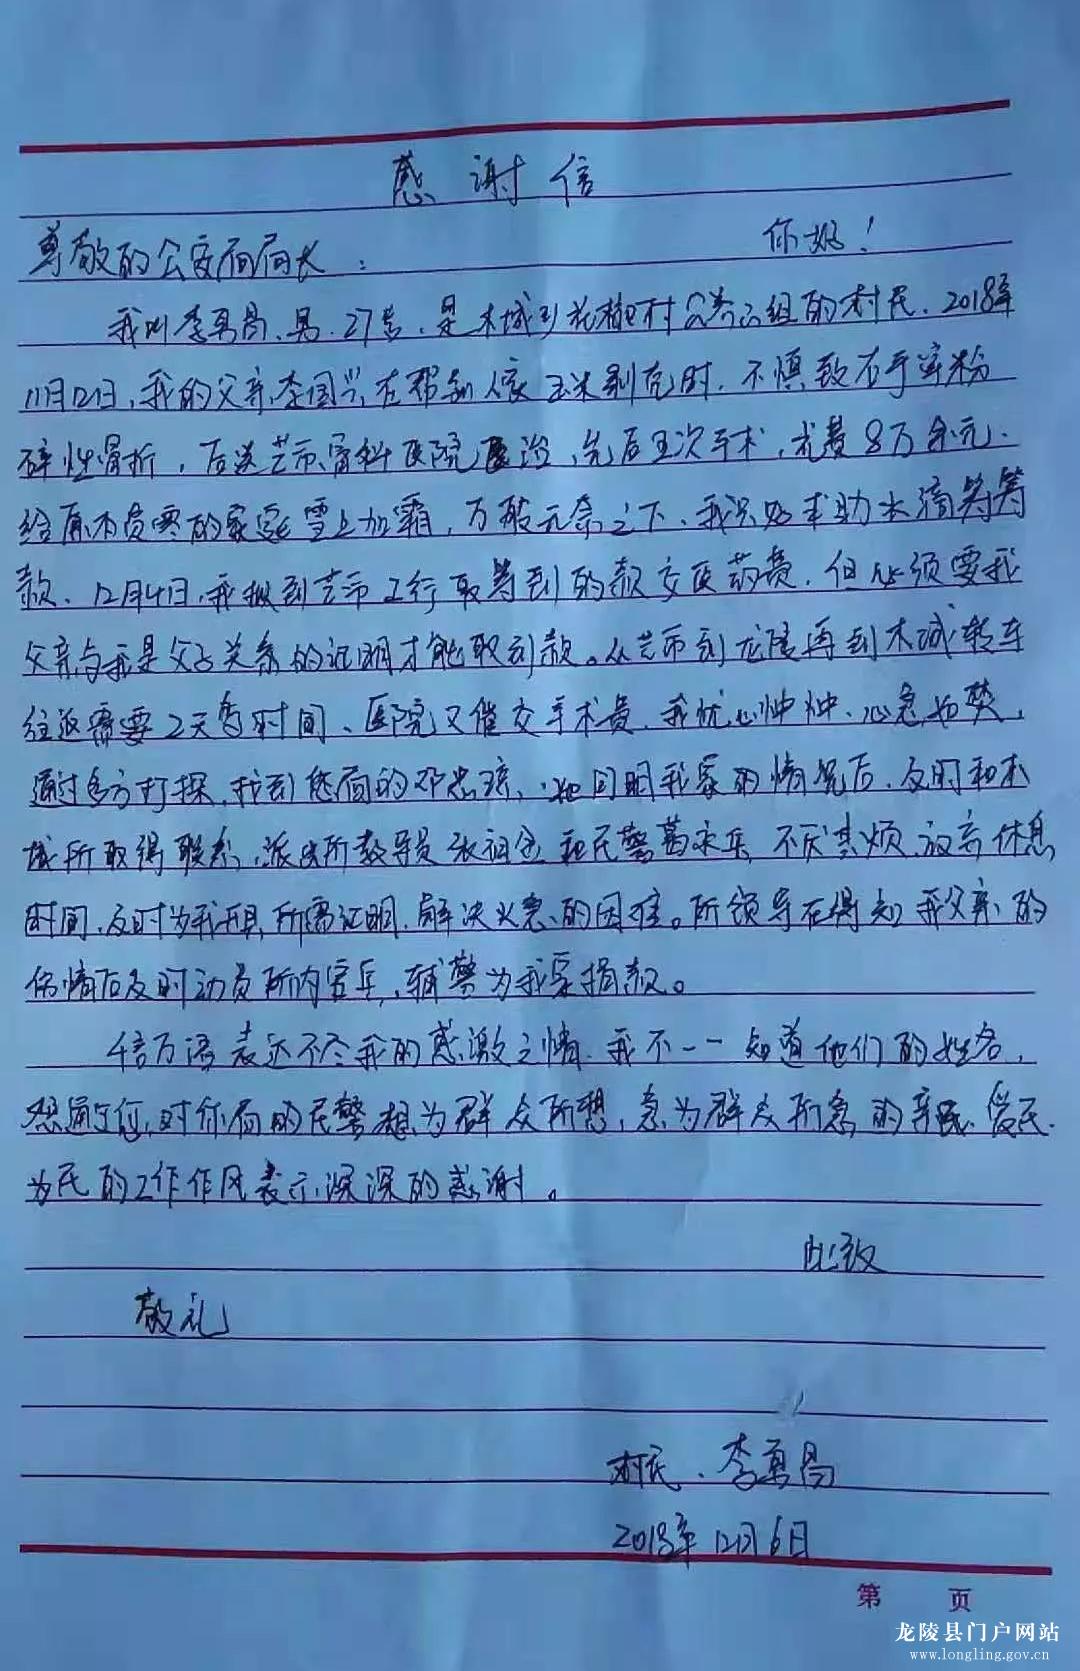 感谢信
尊敬的公安局局长： 你好！
我叫李勇昌、男、27岁，是木城乡花椒村公养六组的村民，2018年
11月12日，我的父亲李国兴，在帮别人家玉米剥壳时，不慎致右手掌粉
碎性骨折，后送芒市骨科医院医治，先后五次手术，光费8万余元.
给原本贫寒的家庭雪上加霜，万般无奈之下、我只好求助水滴筹筹
款、12月4日，我拟到芒市工行取筹到的款交医药费，但必须要我
父亲与我是父子关系的证明才能取到款。从芒市到龙陵再到木城转车
往返需要2天的时间、医院又催交手术费，我忧心忡忡、心急如焚，
通过多方打探，找到您局的邓忠 ，她问明我家的情况后，及时和木
城所取得联系，派出所教导员 和民警 不厌其烦，放弃休息
时间，及时为我开具所需证明，解决火急的困难。所领导在得知我父亲的
伤情后及时动员所内官兵、辅警为我家捐款。
千言万语表达不尽我的感激之情，我不一一知道他们的姓名，
想通过您，对你局的民警想为群众所想，急为群众所急的亲民、爱民、
为民的工作作风表示深深的感谢。
此致
敬礼
村民、李勇昌
2018年12月6日
第 页
龙陵县门户网站
www.longling.gov.cn